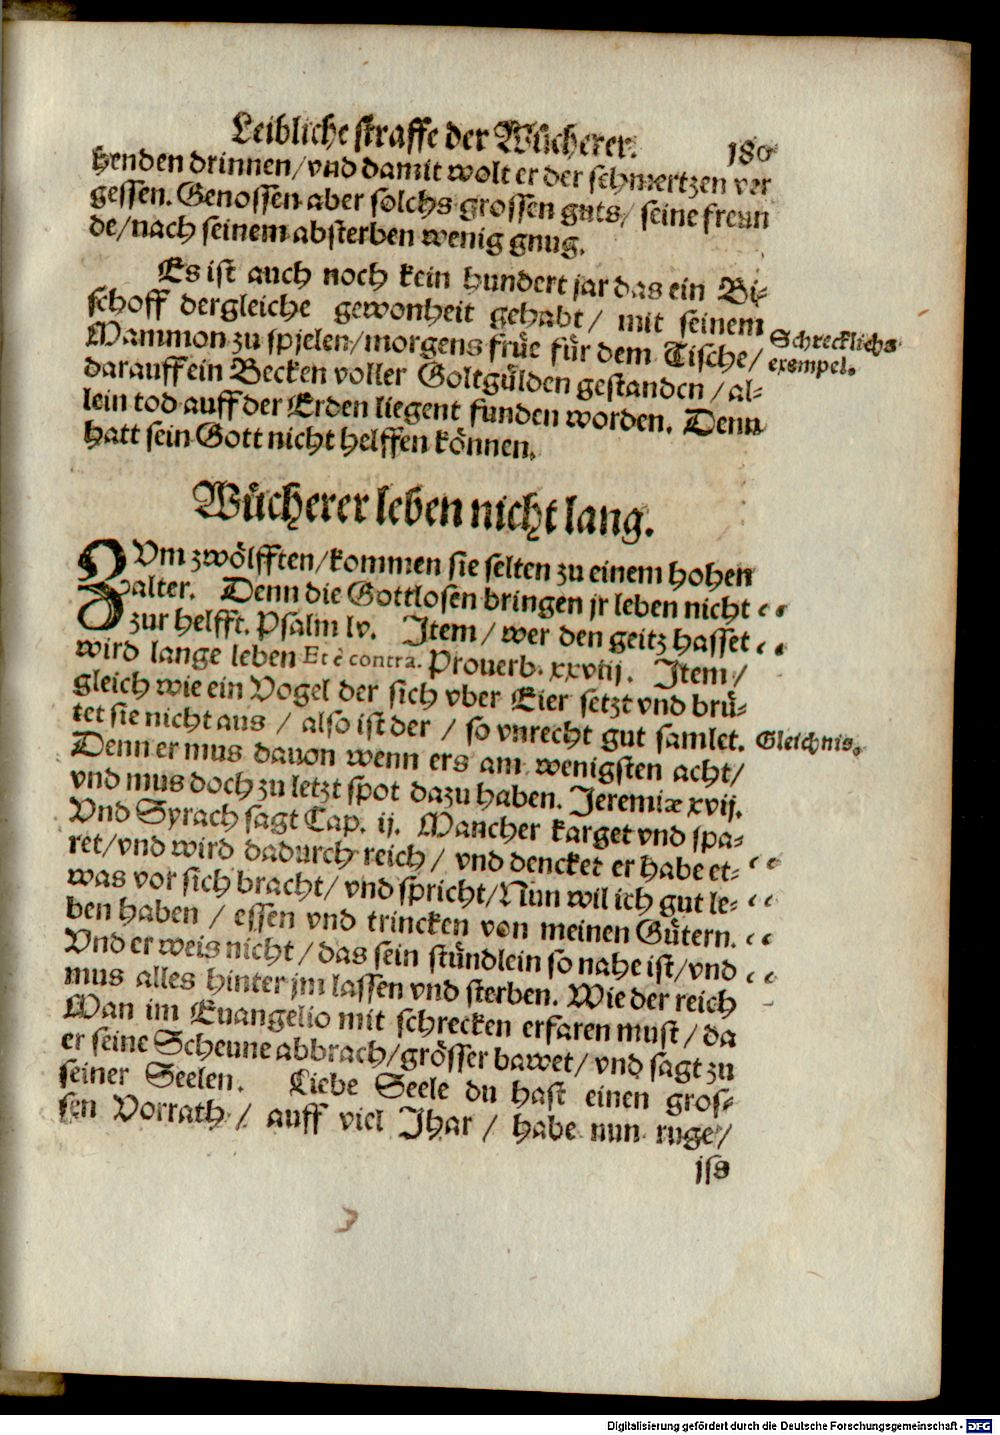 Leibliche straffe der Wücherer. 180
henden drinnen/ vnd damit wolt er der schmertzen ver
gessen. Genossen aber solchs grossen guts/ seine freun
de/ nach seinem absterben wenig gnug.
Es ist auch noch kein hundert jar das ein Bi-
schoff dergleiche gewonheit gehabt/ mit seinem
Mammon zu spielen/ morgens früe für dem Tische/
Schrecklichs
exempel.
darauff ein Becken voller Goltgülden gestanden / al-
lein tod auff der Erden liegent funden worden. Denn
hatt sein Gott nicht helffen können.
Wücherer leben nicht lang.
ZVm zwölfften/ kommen sie selten zu einem hohen
alter. Denn die Gottlosen bringen jr leben nicht
zur helfft. Psalm lv. Item / wer den geitz hasset
wird lange leben Et è contra. Prouerb. xxviij. Item /
gleich wie ein Vogel der sich vber Eier setzt vnd brü-
tet sie nicht aus / also ist der / so vnrecht gut samlet.
Gleichnis.
Denn er mus dauon wenn ers am wenigsten acht/
vnd mus doch zu letzt spot dazu haben. Jeremiæ xvij.
Vnd Syrach sagt Cap. ij. Mancher karget vnd spa-
ret/ vnd wird dadurch reich / vnd dencket er habe et-
was vor sich bracht/ vnd spricht/ Nun wil ich gut le-
ben haben / essen vnd trincken von meinen Gütern.
Vnd er weis nicht / das sein stündlein so nahe ist/ vnd
mus alles hinter jm lassen vnd sterben. Wie der reich
Man im Euangelio mit schrecken erfaren must / da
er seine Scheune abbrach/ grösser bawet / vnd sagt zu
seiner Seelen. Liebe Seele du hast einen gros-
sen Vorrath / auff viel Jhar / habe nun ruge/
iss
Digitalisierung gefördert durch die Deutsche Forschungsgemeinschaft - DFG